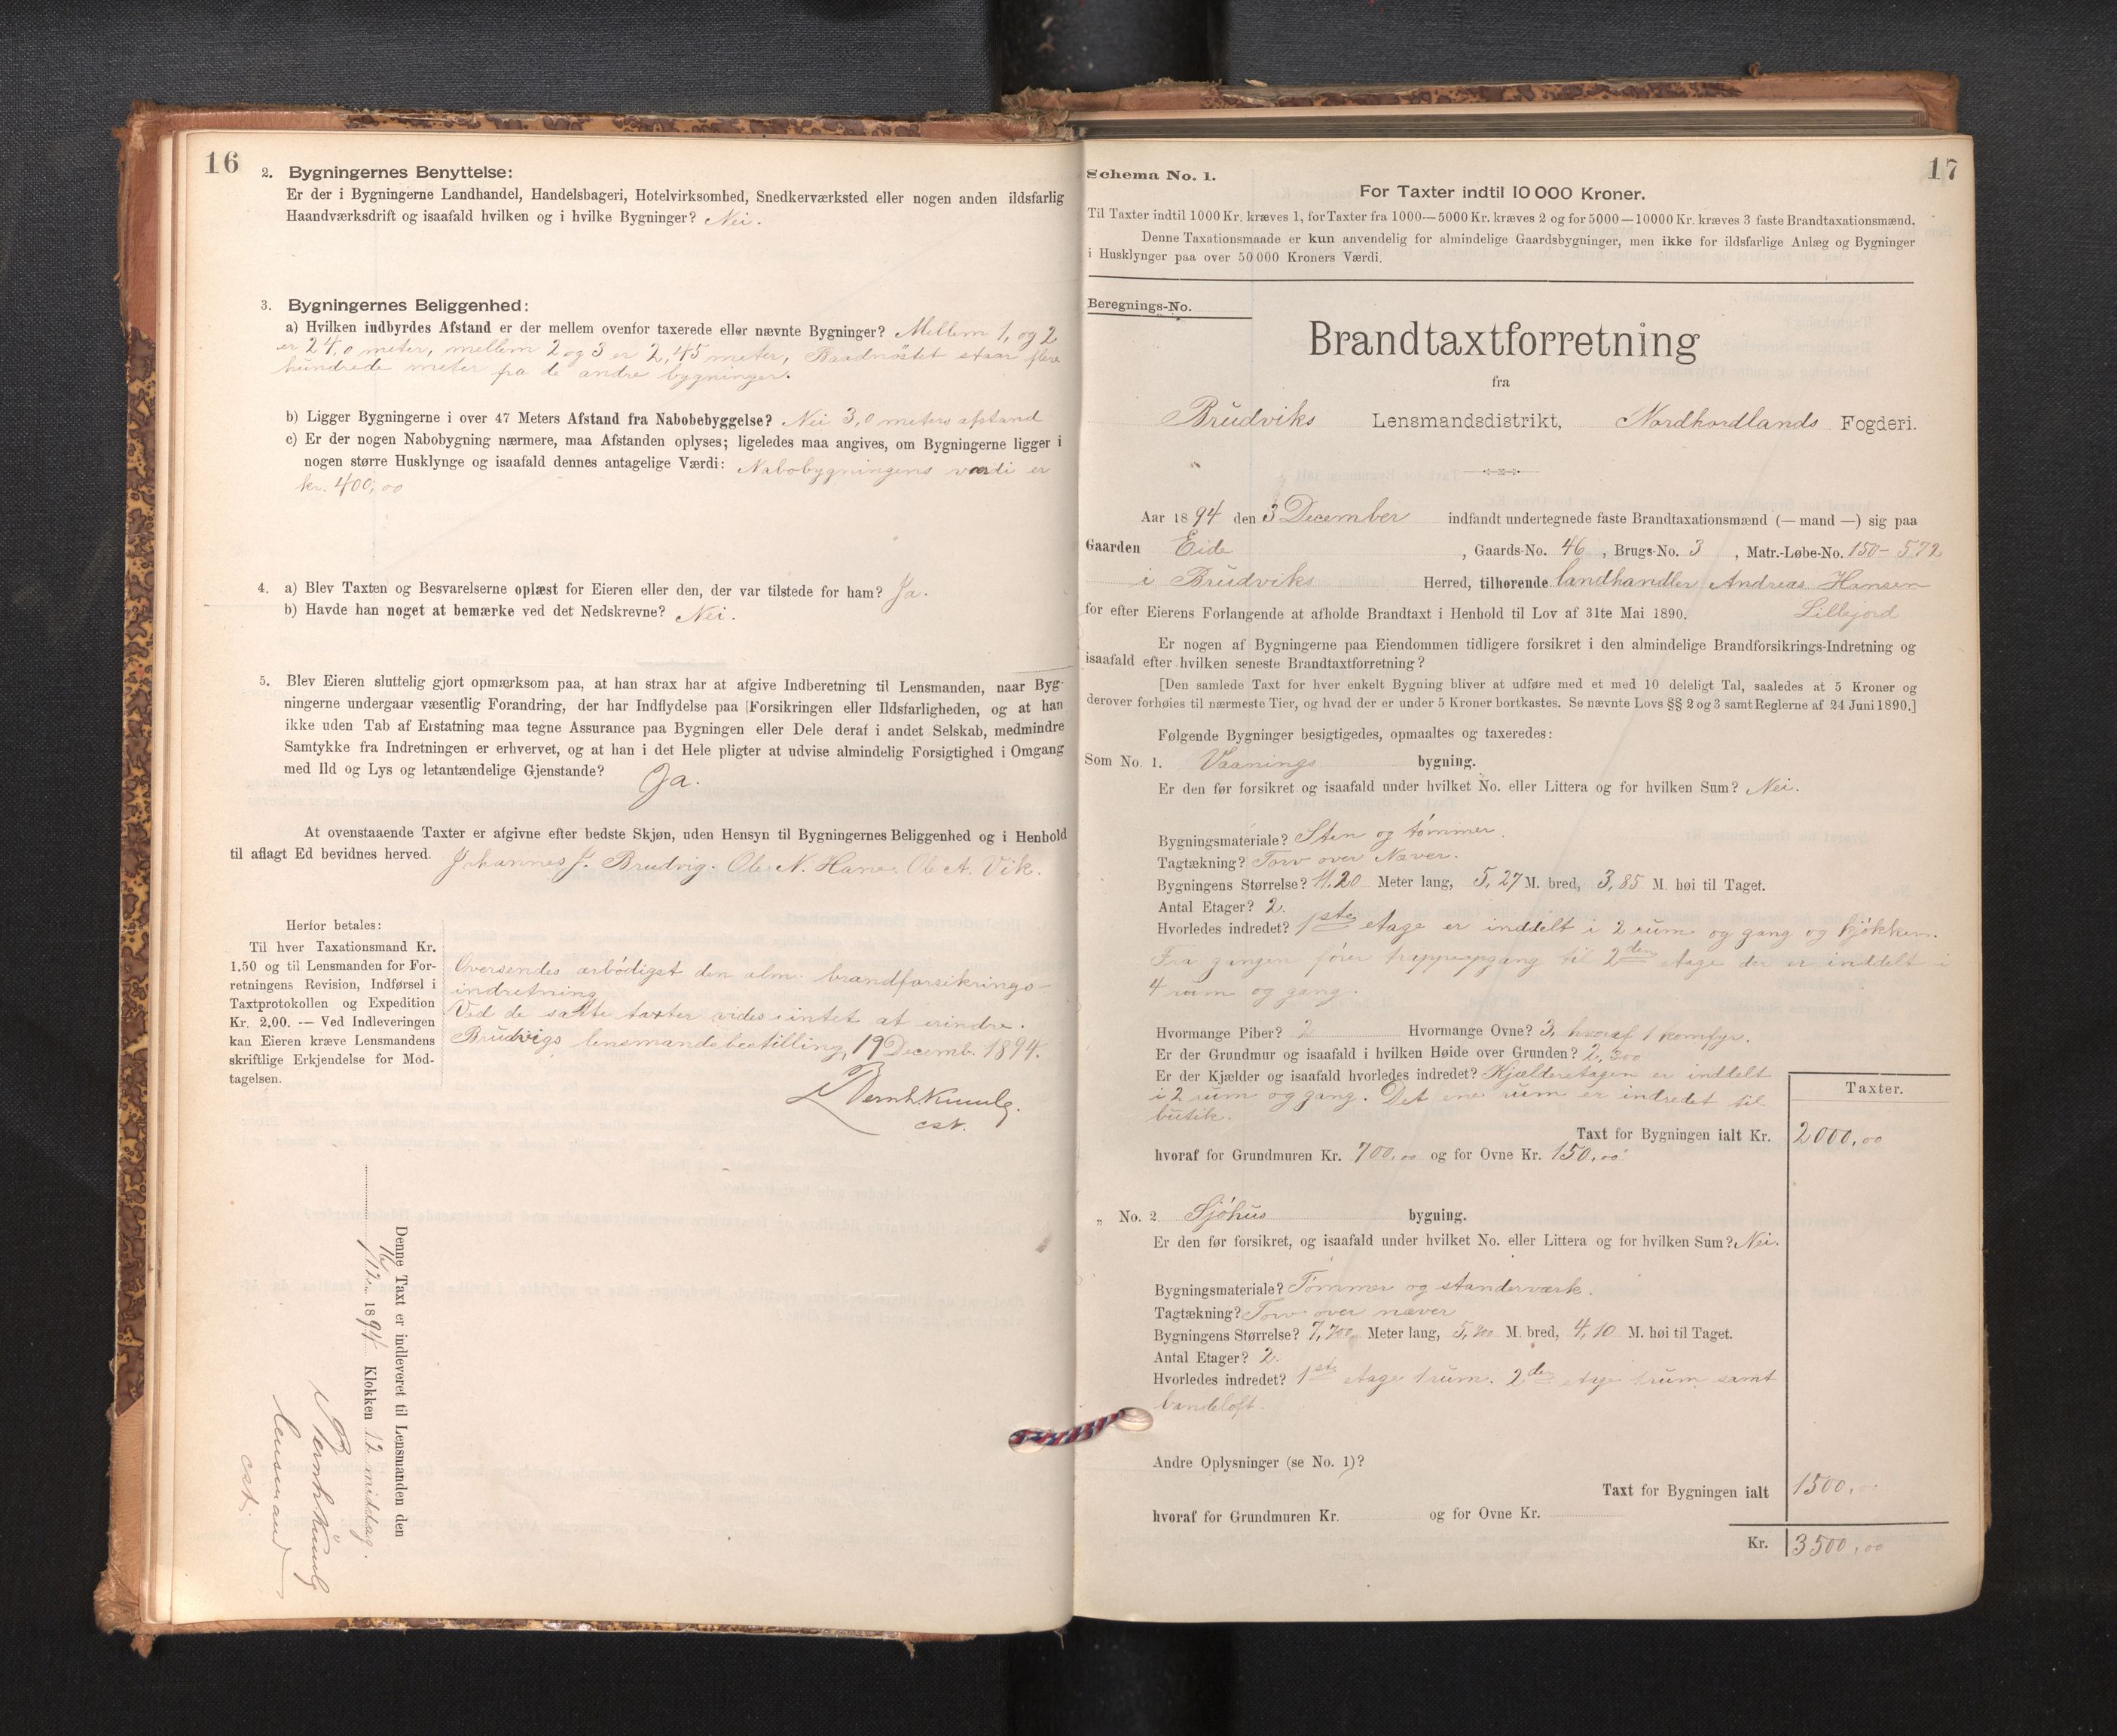 16
2. Bygningernes Benyttelse:
Er der i Bygningerne Landhandel, Handelsbageri, Hotelvirksomhed, Snedkerværksted eller nogen anden ildsfarlig
Haandværksdrift og isaafald hvilken og i hvilke Bygninger? Nei.
3. Bygningernes Beliggenhed:
a) Hvilken indbyrdes Afstand er der mellem ovenfor taxerede eller nævnte Bygninger? Mellem 1, og 2
er 24,0 meter, mellem 2 og 3 er 2,45 meter, Baadnöstet staar flere
hundrede meter fra de andre bygninger.
b) Ligger Bygningerne i over 47 Meters Afstand fra Nabobebyggelse? Nei 3,0 meters afstand
c) Er der nogen Nabobygning nærmere, maa Afstanden oplyses; ligeledes maa angives, om Bygningerne ligger i
nogen større Husklynge og isaafald dennes antagelige Værdi: Nabobygningens værdi er
kr. 400,00
4. a) Blev Taxten og Besvarelserne oplæst for Eieren eller den, der var tilstede for ham? Ja.
b) Havde han noget at bemærke ved det Nedskrevne? Nei.
5. Blev Eieren sluttelig gjort opmærksom paa, at han strax har at afgive Indberetning til Lensmanden, naar Byg-
ningerne undergaar væsentlig Forandring, der har Indflydelse paa Forsikringen eller Ildsfarligheden, og at han
ikke uden Tab af Erstatning maa tegne Assurance paa Bygningen eller Dele deraf i andet Selskab, medmindre
Samtykke fra Indretningen er erhvervet, og at han i det Hele pligter at udvise almindelig Forsigtighed i Omgang
med Ild og Lys og letantændelige Gjenstande? Ja.
At ovenstaaende Taxter er afgivne efter bedste Skjøn, uden Hensyn til Bygningernes Beliggenhed og i Henhold
til aflagt Ed bevidnes herved. Johannes J. Brudvig. Ole N. Hane. Ole A. Vik.
Herfor betales:
Til hver Taxationsmand Kr.
1.50 og til Lensmanden for For-
retningens Revision, Indførsel i
Taxtprotokollen og Expedition
Kr. 2.00. — Ved Indleveringen
kan Eieren kræve Lensmandens
skriftlige Erkjendelse for Mod-
tagelsen.
Oversendes ærbödigst den alm. brandforsikrings-
indretning
Ved de satte taxter vides intet at erindre.
Brudvigs lensmandsbestilling, 19 Decemb. 1894.
cst.
Denne Taxt er indleveret til Lensmanden den
16/12 1894 Klokken 12 middag.
lensmand
cst.
17
Schema No. 1.
For Taxter indtil 10 000 Kroner.
Til Taxter indtil 1000 Kr. kræves 1, for Taxter fra 1000—5000 Kr. kræves 2 og for 5000—10000 Kr. kræves 3 faste Brandtaxationsmænd.
Denne Taxationsmaade er kun anvendelig for almindelige Gaardsbygninger, men ikke for ildsfarlige Anlæg og Bygninger
i Husklynger paa over 50 000 Kroners Værdi.
Beregnings-No.
Brandtaxtforretning
fra
Brudviks Lensmandsdistrikt, Nordhordlands Fogderi.
Aar 1894 den 3 December indfandt undertegnede faste Brandtaxationsmænd (— mand —) sig paa
Gaarden Eide, Gaards-No. 46, Brugs-No. 3, Matr.-Løbe-No. 150-572
i Brudviks Herred, tilhørende landhandler Andreas Hansen
for efter Eierens Forlangende at afholde Brandtaxt i Henhold til Lov af 31te Mai 1890. Lillejord
Er nogen af Bygningerne paa Eiendommen tidligere forsikret i den almindelige Brandforsikrings-Indretning og
isaafald efter hvilken seneste Brandtaxtforretning?
[Den samlede Taxt for hver enkelt Bygning bliver at udføre med et med 10 deleligt Tal, saaledes at 5 Kroner og
derover forhøies til nærmeste Tier, og hvad der er under 5 Kroner bortkastes. Se nævnte Lovs §§ 2 og 3 samt Reglerne af 24 Juni 1890.]
Følgende Bygninger besigtigedes, opmaaltes og taxeredes:
Som No. 1. Vaanings bygning.
Er den før forsikret og isaafald under hvilket No. eller Littera og for hvilken Sum? Nei.
Bygningsmateriale? Sten og tömmer.
Tagtækning? Torv over Næver.
Bygningens Størrelse? 11.20 Meter lang, 5,27 M. bred, 3,85 M. høi til Taget.
Antal Etager? 2.
Hvorledes indredet? 1ste etage er inddelt i 2 rum og gang og kjökken.
Fra gangen förer trappeopgang til 2den etage der er inddelt i
4 rum og gang.
Hvormange Piber? 2 Hvormange Ovne? 3, hvoraf 1 komfyr.
Er der Grundmur og isaafald i hvilken Høide over Grunden? 2,300
Er der Kjælder og isaafald hvorledes indredet? Kjælderetagen er inddelt
i 2 rum og gang. Det ene rum er indredet til
butik.
Taxter.
Taxt for Bygningen ialt Kr. 2000,00
hvoraf for Grundmuren Kr. 700,00 og for Ovne Kr. 150,00
„ No. 2 Sjöhus bygning.
Er den før forsikret, og isaafald under hvilket No. eller Littera og for hvilken Sum? Nei.
Bygningsmateriale? Tömmer og standerværk.
Tagtækning? Torv over næver
Bygningens Størrelse? 7,700 Meter lang, 5,200 M. bred, 4,10 M. høi til Taget.
Antal Etager? 2.
Hvorledes indredet? 1ste etage 1 rum. 2den etage 1 rum samt
bandeloft.
Andre Oplysninger (se No. 1)?
Taxt for Bygningen ialt 1500,00
hvoraf for Grundmuren Kr. og for Ovne Kr.
Kr. 3500,00